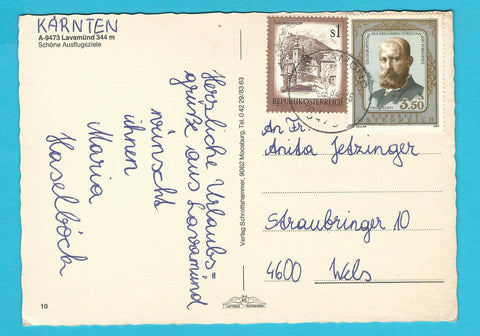 KÄRNTEN
A-9473 Lavamünd 344 m
Schöne Ausflugsziele
Herzliche Urlaubs=
grüße aus Lavamünd
wünscht
ihnen
Maria
Haselböck
10
Verlag Schrottshammer, 9062 Moosburg, Tel. 0 42 29/83 63
s1
REPUBLIK ÖSTERREICH
3.50
An Fr.
Anita Jetzinger
Straubringer 10
4600 Wels